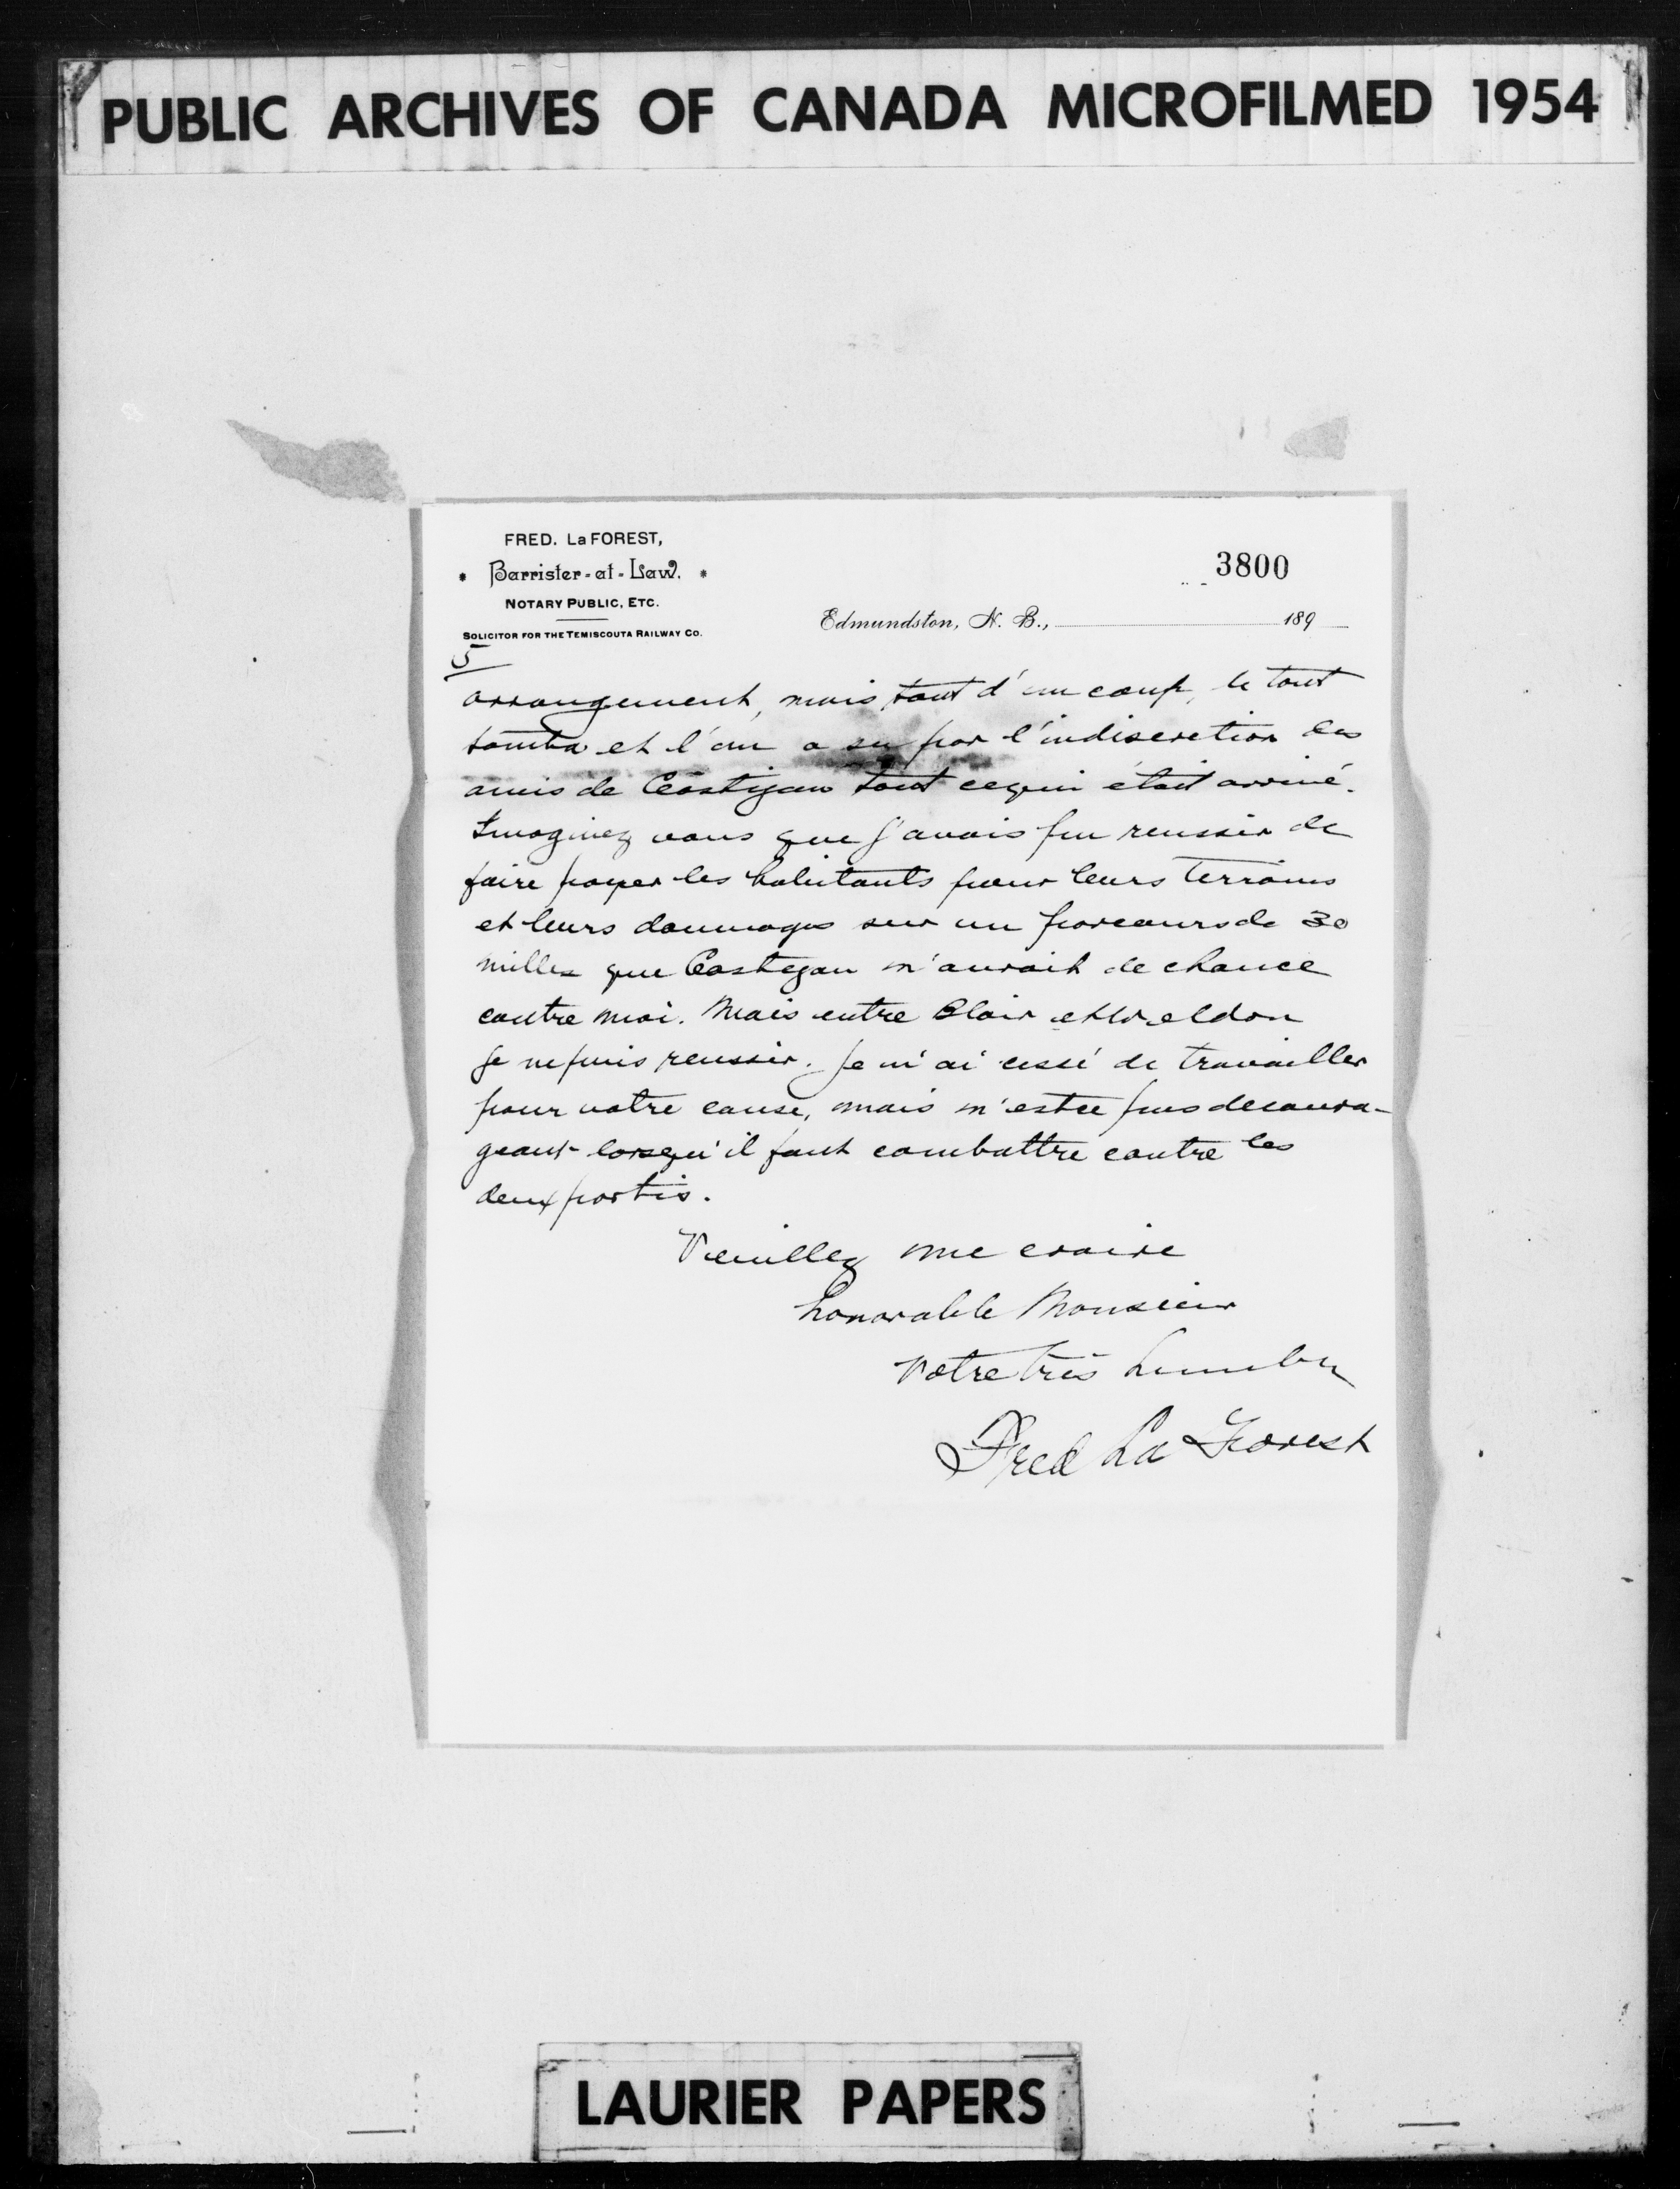 PUBLIC ARCHIVES OF CANADA MICROFILMED 1954
FRED. La FOREST,
Barrister-at-Law.
NOTARY PUBLIC, ETC.
SOLICITOR FOR THE TEMISCOUTA RAILWAY CO.
3800
Edmundston, N. B., 189
5
arrangement, mais tout d'un coup, le tout
tomba et l'on a su par l'indiscretion des
amis de Costigan tout cequi était arrivé.
Imaginez vous que j'avais pu reussir de
faire payer les habitants pour leurs terrains
et leurs dommages sur un parcours de 30
milles que Costegan n'aurait de chance
contre moi. Mais entre Blair et Weldon
je ne puis reussir. Je n'ai cessé de travailler
pour votre cause, mais n'estce pas decoura-
geant lorsqu'il faut combattre contre les
deux partis.
Veuillez me croire
honorable Monsieur
Votre très humble
Fred La Forest
LAURIER PAPERS